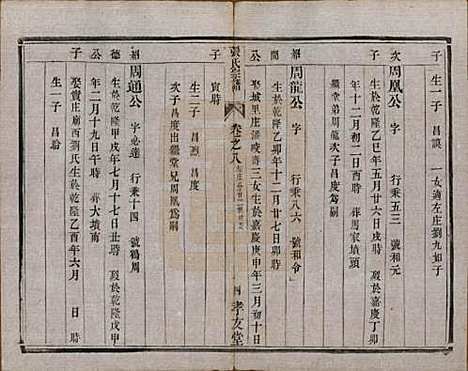 子　生一子　昌謨　一女適左庄劉九如子
次　周鳳公　字　行秉五三　號和元
生於乾隆乙巳年五月廿六日戌時　歿於嘉慶丁卯
年十二月初二日酉時　葬馬家墳頭
繼堂弟周龍次子昌度為嗣
紹　周龍公　字　行秉八六　號和令
開　生於乾隆乙卯年十二月廿七日卯時
公　娶城里庄潘　三女生於嘉慶庚申年三月初十日
張氏宗譜　卷之八　四　孝友堂
寅時
子　生二子　昌烈　昌度
次子昌度出繼堂兄周鳳為嗣
紹　周通公　字必達　行秉十四　號鶴周
德　生於乾隆甲戌年七月十七日辰時　歿於乾隆戊申
公　年二月十九日午時　葬大墳南
娶賣庄廟西劉氏生於乾隆乙酉年六月　日　時
子　生一子　昌齡